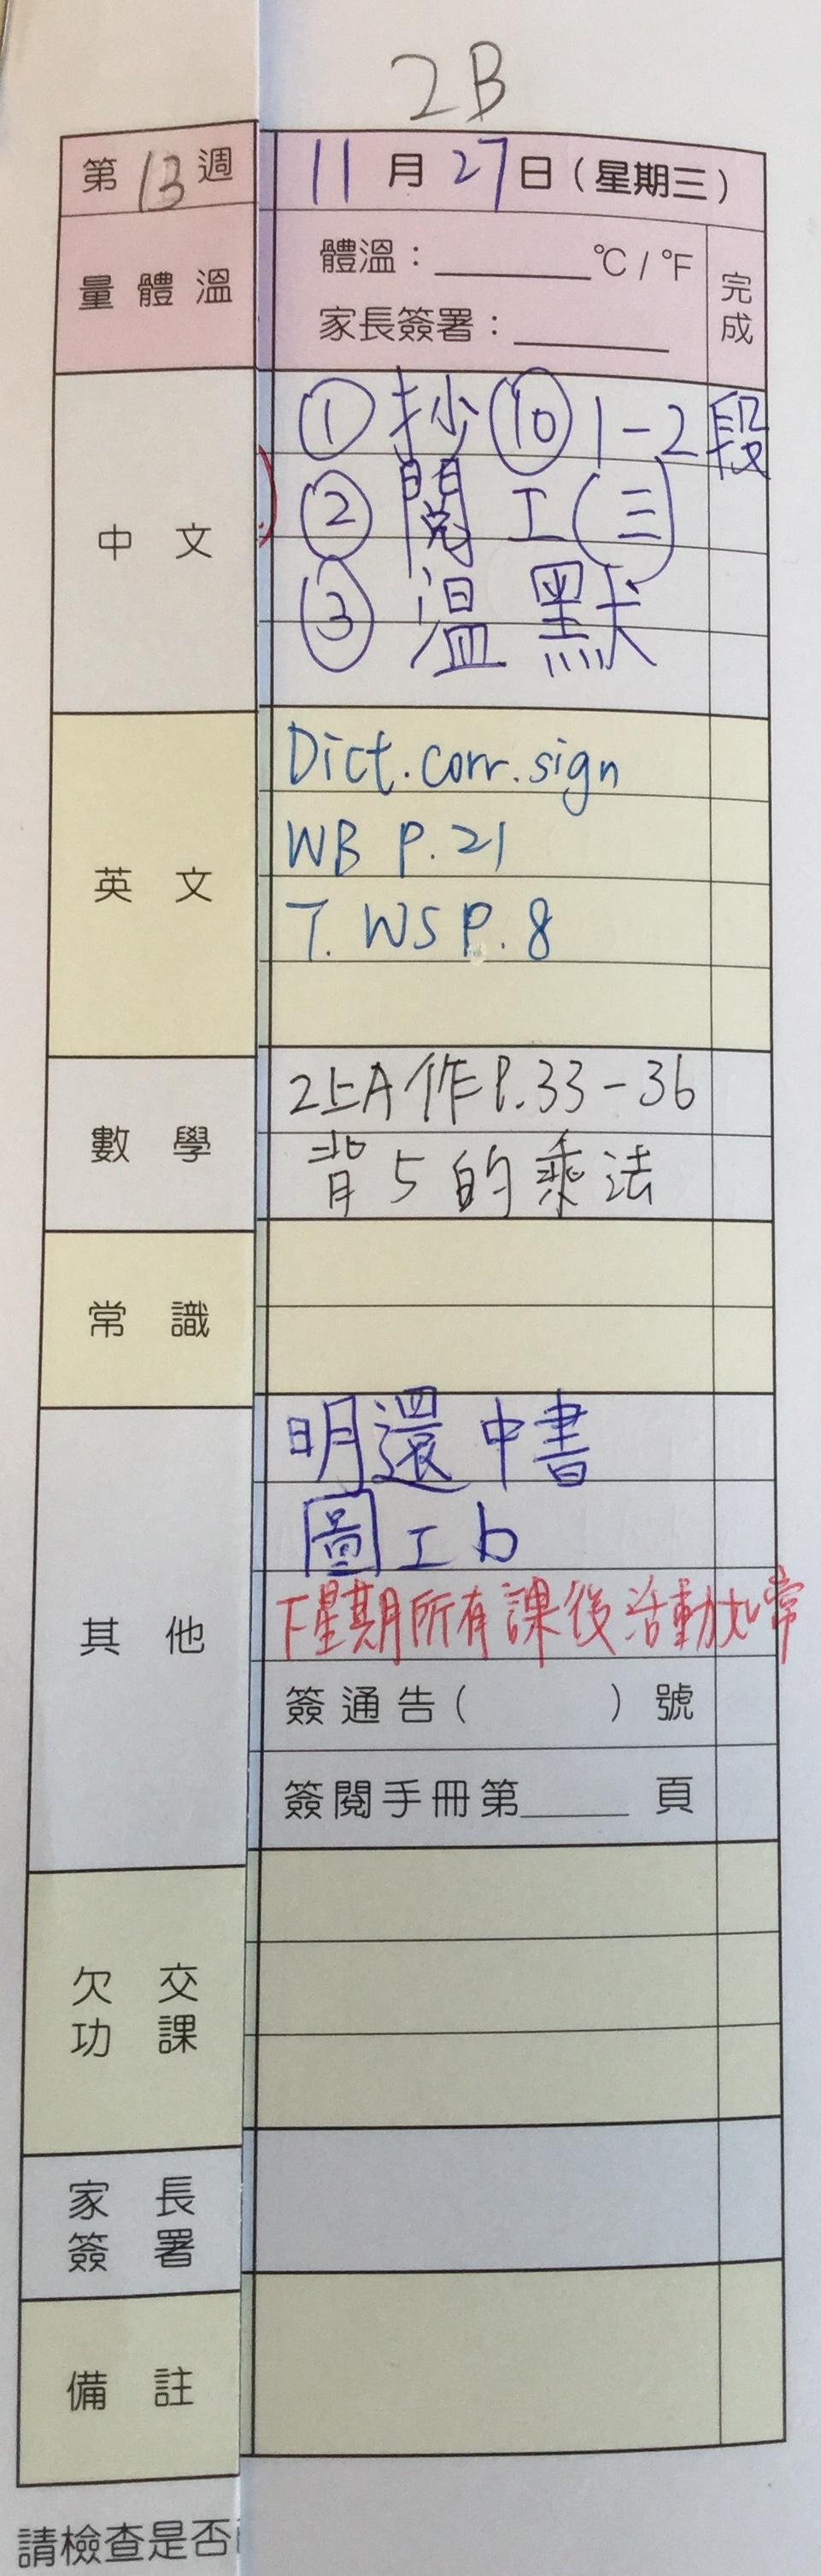 2B
第 13 週 11 月 27 日 (星期三)
量體溫 體溫: ______ °C / °F 完成
家長簽署: ______
中文 ① 抄 ⑩ 1-2 段
② 閱工(三)
③ 溫默
英文 Dict. corr. sign
WB P.21
T. WS P.8
數學 2上A作P.33-36
背5的乘法
常識
其他 明還中書
圖工b
下星期所有課後活動如常
簽通告( ) 號
簽閱手冊第______頁
欠交功課
家長簽署
備註
請檢查是否